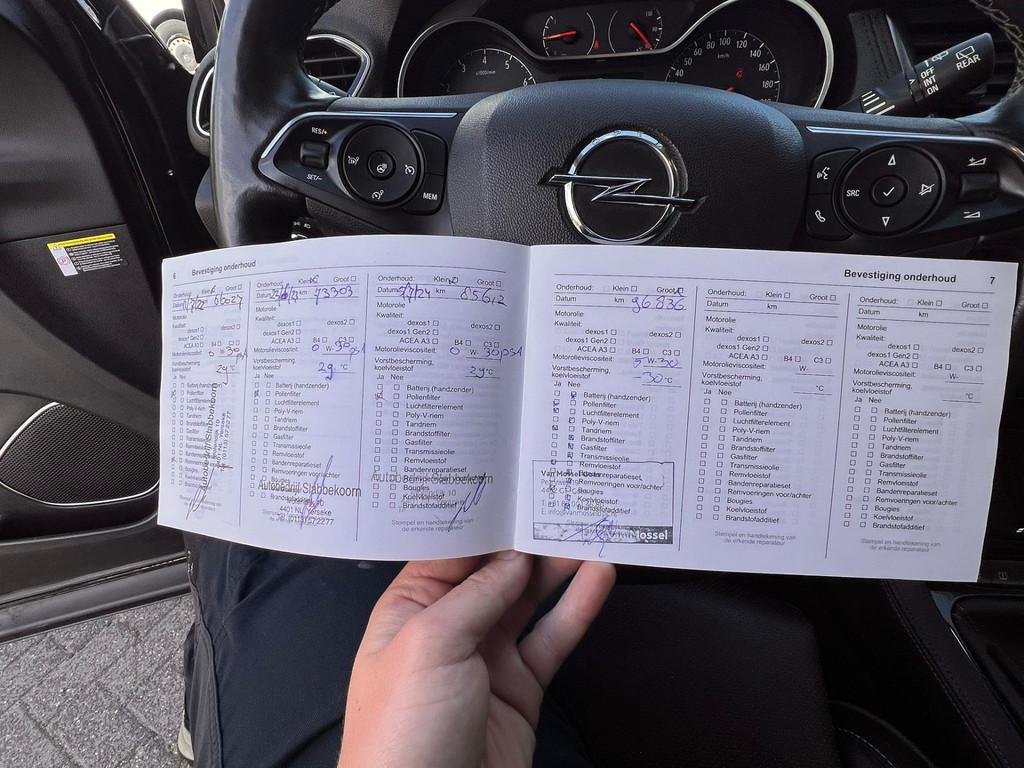 RES/+
SET/-
MEM
SRC
OFF
INT
ON
REAR
x1000/min
4
5
6
km/h
40
60
80
100
120
140
160
180
6 Bevestiging onderhoud
Onderhoud: Klein Groot
Motorolie
Kwaliteit:
dexos1 dexos2
dexos1 Gen2
ACEA A3 B4 C3
Motorolieviscositeit: 0 W- 30
Vorstbescherming,
koelvloeistof 29 °C
Ja Nee
Batterij (handzender)
Pollenfilter
Luchtfilterelement
Poly-V-riem
Tandriem
Brandstoffilter
Gasfilter
Autobedrijf Slabbekoorn
Onderhoud: Klein Groot
Datum km 73303
Motorolie
Kwaliteit:
dexos1 dexos2
dexos1 Gen2
ACEA A3 B4 C3
Motorolieviscositeit: 0 W- 30
Vorstbescherming,
koelvloeistof 29 °C
Ja Nee
Batterij (handzender)
Pollenfilter
Luchtfilterelement
Poly-V-riem
Tandriem
Brandstoffilter
Gasfilter
Transmissieolie
Remvloeistof
Bandenreparatieset
Remvoeringen voor/achter
Autobedrijf Slabbekoorn
(0113) 572277
Stempel en handtekening van
de erkende reparateur
Onderhoud: Klein Groot
Datum 5/7/24 km 85612
Motorolie
Kwaliteit:
dexos1 dexos2
dexos1 Gen2
ACEA A3 B4 C3
Motorolieviscositeit: 0 W- 30
Vorstbescherming,
koelvloeistof 29 °C
Ja Nee
Batterij (handzender)
Pollenfilter
Luchtfilterelement
Poly-V-riem
Tandriem
Brandstoffilter
Gasfilter
Transmissieolie
Remvloeistof
Bandenreparatieset
Autobedrijf Slabbekoorn
Bougies
Koelvloeistof
Brandstofadditief
Stempel en handtekening van
de erkende reparateur
Bevestiging onderhoud 7
Onderhoud: Klein Groot
Datum km 96836
Motorolie
Kwaliteit:
dexos1 dexos2
dexos1 Gen2
ACEA A3 B4 C3
Motorolieviscositeit: 5 W- 30
Vorstbescherming,
koelvloeistof -30 °C
Ja Nee
Batterij (handzender)
Pollenfilter
Luchtfilterelement
Poly-V-riem
Tandriem
Brandstoffilter
Gasfilter
Transmissieolie
Remvloeistof
Bandenreparatieset
Remvoeringen voor/achter
Bougies
Koelvloeistof
Brandstofadditief
Van Mossel
Onderhoud: Klein Groot
Datum km
Motorolie
Kwaliteit:
dexos1 dexos2
dexos1 Gen2
ACEA A3 B4 C3
Motorolieviscositeit: W-
Vorstbescherming,
koelvloeistof °C
Ja Nee
Batterij (handzender)
Pollenfilter
Luchtfilterelement
Poly-V-riem
Tandriem
Brandstoffilter
Gasfilter
Transmissieolie
Remvloeistof
Bandenreparatieset
Remvoeringen voor/achter
Bougies
Koelvloeistof
Brandstofadditief
Stempel en handtekening van
de erkende reparateur
Onderhoud: Klein Groot
Datum km
Motorolie
Kwaliteit:
dexos1 dexos2
dexos1 Gen2
ACEA A3 B4 C3
Motorolieviscositeit: W-
Vorstbescherming,
koelvloeistof °C
Ja Nee
Batterij (handzender)
Pollenfilter
Luchtfilterelement
Poly-V-riem
Tandriem
Brandstoffilter
Gasfilter
Transmissieolie
Remvloeistof
Bandenreparatieset
Remvoeringen voor/achter
Bougies
Koelvloeistof
Brandstofadditief
Stempel en handtekening van
de erkende reparateur